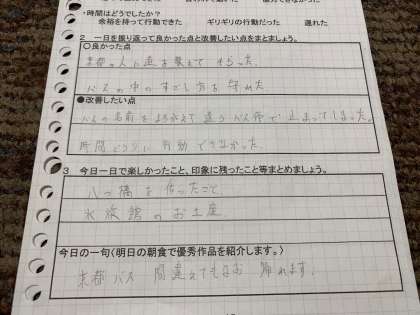 ・時間はどうでしたか？
余裕を持って行動できた　ギリギリの行動だった　遅れた
2　一日を振り返って良かった点と改善したい点をまとめましょう。
○良かった点
京都の人に道を教えてもらった。
バスの中のすごし方を守れた。
●改善したい点
バスの名前をまちがえて違うバス停で止まってしまった。
時間どうりに行動できなかった。
3　今日一日で楽しかったこと、印象に残ったこと等まとめましょう。
八つ橋を作ったこと
水族館のお土産
今日の一句（明日の朝食で優秀作品を紹介します。）
京都バス　間違えてもなお　帰れます。